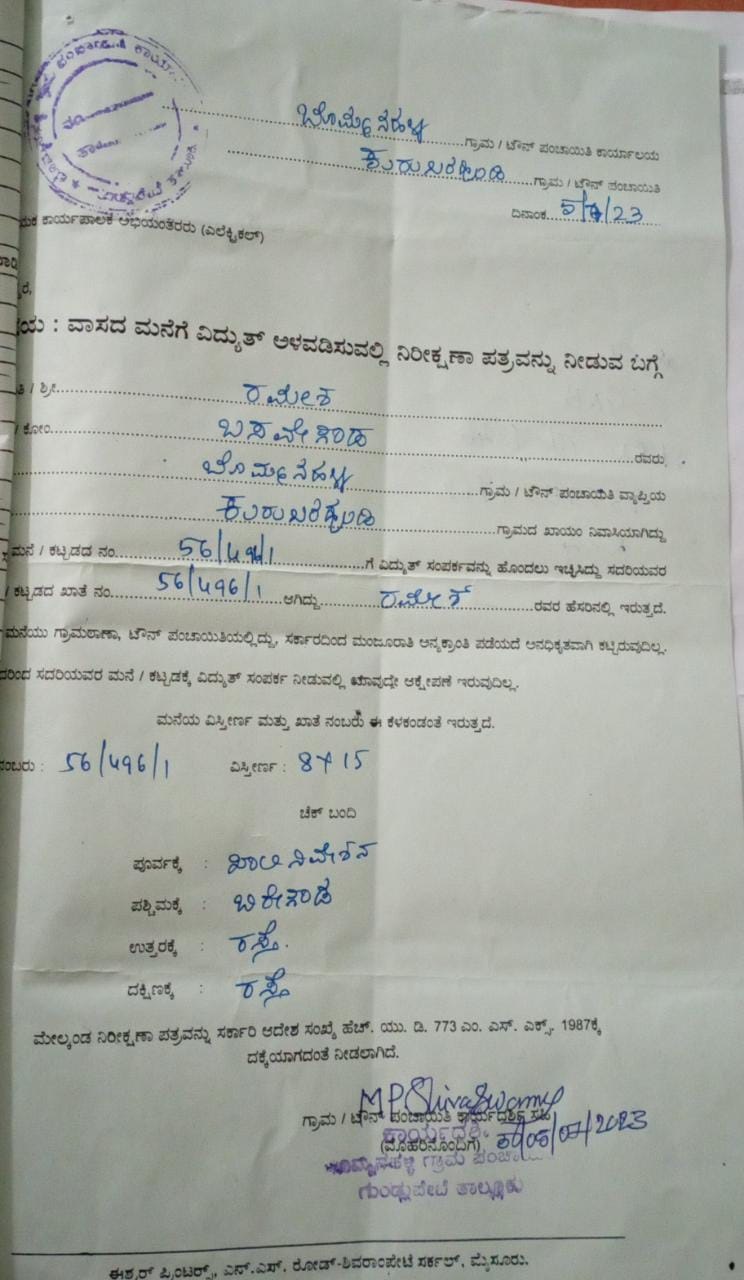 ಬೊಮ್ಮನಹಳ್ಳಿ ಗ್ರಾಮ / ಟೌನ್ ಪಂಚಾಯಿತಿ ಕಾರ್ಯಾಲಯ
ಕುರುಬರಹುಂಡಿ ಗ್ರಾಮ / ಟೌನ್ ಪಂಚಾಯಿತಿ
ದಿನಾಂಕ 5/7/23
ಕಾರ್ಯಪಾಲಕ ಅಭಿಯಂತರರು (ಎಲೆಕ್ಟ್ರಿಕಲ್)
: ವಾಸದ ಮನೆಗೆ ವಿದ್ಯುತ್ ಅಳವಡಿಸುವಲ್ಲಿ ನಿರೀಕ್ಷಣಾ ಪತ್ರವನ್ನು ನೀಡುವ ಬಗ್ಗೆ
/ ಶ್ರೀ ರಮೇಶ
/ ಕೋಂ ಬಸವೇಗೌಡ ರವರು
ಬೊಮ್ಮನಹಳ್ಳಿ ಗ್ರಾಮ / ಟೌನ್ ಪಂಚಾಯಿತಿ ವ್ಯಾಪ್ತಿಯ
ಕುರುಬರಹುಂಡಿ ಗ್ರಾಮದ ಖಾಯಂ ನಿವಾಸಿಯಾಗಿದ್ದು
ಮನೆ / ಕಟ್ಟಡದ ನಂ 56/496/1 ಗೆ ವಿದ್ಯುತ್ ಸಂಪರ್ಕವನ್ನು ಹೊಂದಲು ಇಚ್ಛಿಸಿದ್ದು ಸದರಿಯವರ
/ ಕಟ್ಟಡದ ಖಾತೆ ನಂ 56/496/1 ಆಗಿದ್ದು ರಮೇಶ್ ರವರ ಹೆಸರಿನಲ್ಲಿ ಇರುತ್ತದೆ.
ಮನೆಯು ಗ್ರಾಮಠಾಣಾ, ಟೌನ್ ಪಂಚಾಯಿತಿಯಲ್ಲಿದ್ದು, ಸರ್ಕಾರದಿಂದ ಮಂಜೂರಾತಿ ಅನ್ಯಕ್ರಾಂತಿ ಪಡೆಯದೆ ಅನಧಿಕೃತವಾಗಿ ಕಟ್ಟಿರುವುದಿಲ್ಲ.
ಸದರಿಯವರ ಮನೆ / ಕಟ್ಟಡಕ್ಕೆ ವಿದ್ಯುತ್ ಸಂಪರ್ಕ ನೀಡುವಲ್ಲಿ ಯಾವುದ್ದೇ ಆಕ್ಷೇಪಣೆ ಇರುವುದಿಲ್ಲ.
ಮನೆಯ ವಿಸ್ತೀರ್ಣ ಮತ್ತು ಖಾತೆ ನಂಬರು ಈ ಕೆಳಕಂಡಂತೆ ಇರುತ್ತದೆ.
ನಂಬರು : 56/496/1 ವಿಸ್ತೀರ್ಣ : 8x15
ಚೆಕ್ ಬಂದಿ
ಪೂರ್ವಕ್ಕೆ : ಖಾಲಿ ನಿವೇಶನ
ಪಶ್ಚಿಮಕ್ಕೆ :
ಉತ್ತರಕ್ಕೆ : ರಸ್ತೆ.
ದಕ್ಷಿಣಕ್ಕೆ : ರಸ್ತೆ
ಮೇಲ್ಕಂಡ ನಿರೀಕ್ಷಣಾ ಪತ್ರವನ್ನು ಸರ್ಕಾರಿ ಆದೇಶ ಸಂಖ್ಯೆ ಹೆಚ್. ಯು. ಡಿ. 773 ಎಂ. ಎಸ್. ಎಕ್ಸ್. 1987ಕ್ಕೆ
ದಕ್ಕೆಯಾಗದಂತೆ ನೀಡಲಾಗಿದೆ.
MP Shivaswamy
ಗ್ರಾಮ / ಟೌನ್ ಪಂಚಾಯಿತಿ ಕಾರ್ಯದರ್ಶಿ ಸಹಿ
ಕಾರ್ಯದರ್ಶಿ
(ಮೊಹರಿನೊಂದಿಗೆ) 05/07/2023
ಬೊಮ್ಮನಹಳ್ಳಿ ಗ್ರಾಮ ಪಂಚಾ
ಗುಂಡ್ಲುಪೇಟೆ ತಾಲ್ಲೂಕು
ಈಶ್ವರ್ ಪ್ರಿಂಟರ್ಸ್, ಎನ್.ಎಸ್. ರೋಡ್-ಶಿವರಾಂಪೇಟೆ ಸರ್ಕಲ್, ಮೈಸೂರು.